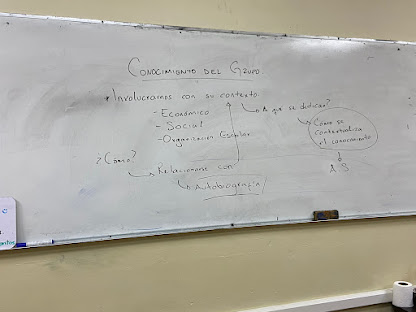 Conocimiento del Grupo.
* Involucrarnos con su contexto.
- Económico
- Social
- Organización Escolar
A qué se dedican?
Cómo se
contextualiza
el conocimiento
A S
¿Cómo?
Relacionarse con
Autobiografía